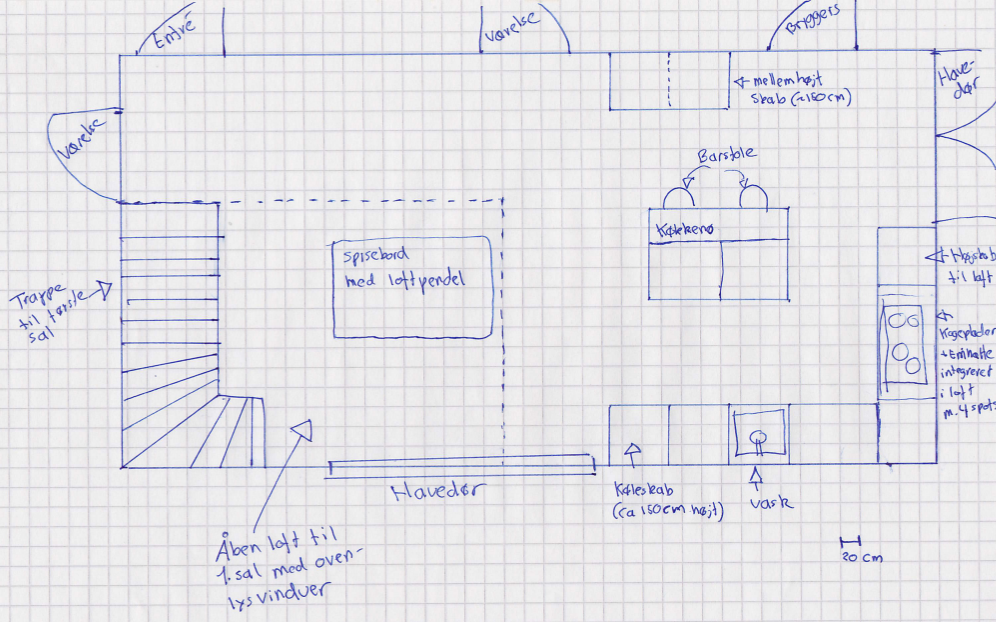 Entré
Værelse
Bryggers
Have-
dør
mellemhøjt
skab (~150cm)
Værelse
Barstole
Køkkenø
spisebord
med loftpendel
Højskab
til loft
Trappe
til første
sal
Kogeplader
+Emhætte
integreret
i loft
m. 4 spots
Havedør
Køleskab
(ca 150cm højt)
vask
Åben loft til
1. sal med oven-
lysvinduer
20 cm